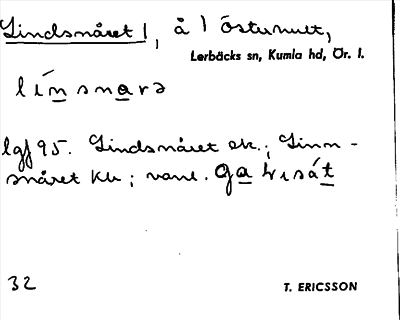 Lindsnåret 1, å 1 Östernutt,
Lerbäcks sn, Kumla hd, Ör. l.
lín snarə
lgf 95. Lindsnåret ek.; Linn-
snåret Kk; vanl.
32
T. ERICSSON